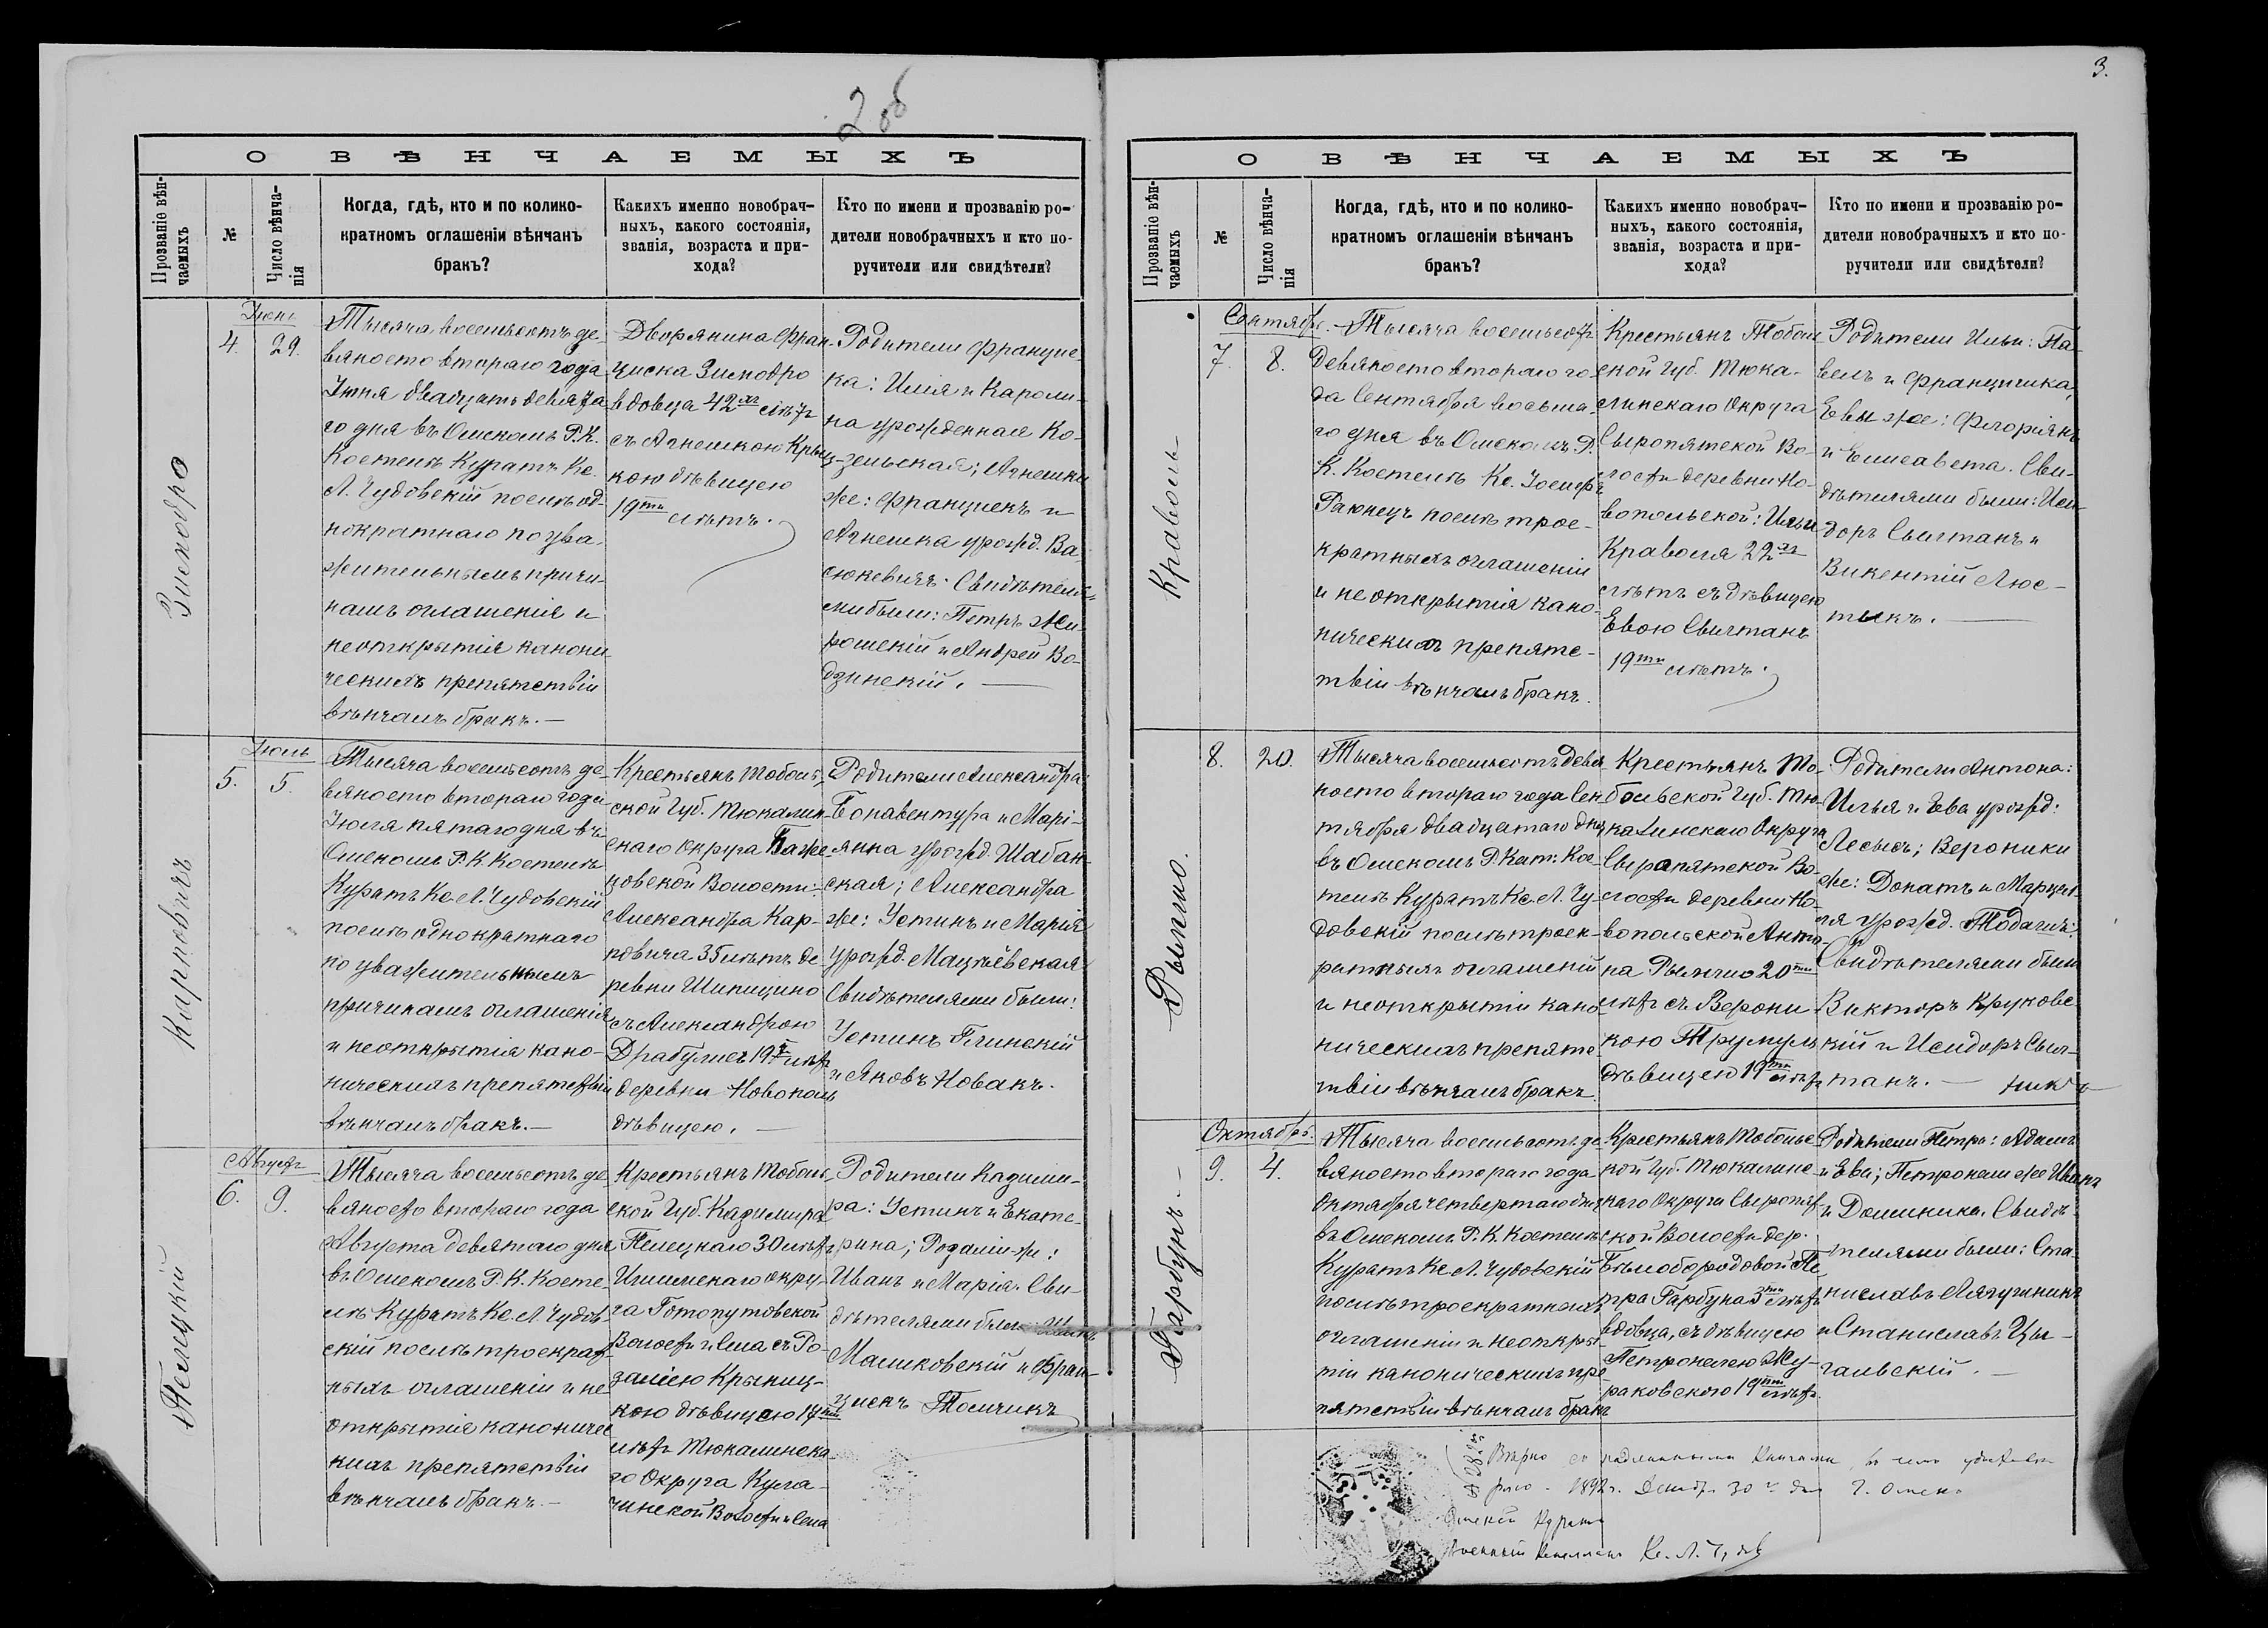 2 об
О ВѢНЧАЕМЫХЪ
Прозваніе вѣн-
чаемыхъ
№
Число вѣнча-
нія
Когда, гдѣ, кто и по колико-
кратномъ оглашеніи вѣнчанъ
бракъ?
Какихъ именно новобрач-
ныхъ, какого состоянія,
званія, возраста и при-
хода?
Кто по имени и прозванію ро-
дители новобрачныхъ и кто по-
ручители или свидѣтели?
Зискобро
Іюнь
4. 29.
Тысяча восемьсотъ де-
вяносто втораго года
Іюня двадцать девята
го дня въ Омскомъ Р. К.
Костелѣ Куратъ Кс.
Л. Чудовскій послѣ од-
нократнаго по ува-
жительнымъ причи-
намъ оглашенія и
неоткрытія канони
ческихъ препятствій
вѣнчалъ бракъ. —
Дворянина Фран-
циска Зискобро
вдовца 42хъ лѣтъ
съ Агнешкою Крыц-
кою дѣвицею
19ти лѣтъ.
Родители Францис-
ка: Илія и Кароли-
на урожденная Ко-
зельская; Агнешки
же: Францискъ и
Агнешка урожд. Ва-
сюкевичъ. Свидѣтеля-
ми были: Петръ Жи-
рошскій и Андрей Во-
дзинскій. —
Карповичъ
Іюль
5. 5.
Тысяча восемьсотъ де-
вяносто втораго года
Іюля пятаго дня въ
Омскомъ Р. К. Костелѣ
Куратъ Кс. Л. Чудовскій
послѣ однократнаго
по уважительнымъ
причинамъ оглашенія
и неоткрытія кано-
ническихъ препятствій
вѣнчалъ бракъ. —
Крестьянъ Тоболь-
ской Губ. Тюкалин-
скаго Округа Баже-
цовской Волости:
Александра Кар-
повича 35 лѣтъ де-
ревни Шипицино
съ Александрою
Драбулисъ 19ти лѣтъ
деревни Новополь
дѣвицею. —
Родители Александра:
Бонавентура и Марі-
анна урожд. Шабан-
ская; Александра
же: Устинъ и Марія
урожд. Мацѣевская.
Свидѣтелями были:
Устинъ Глинскій
и Яковъ Новакъ.
Пелецкій
Августъ
6. 9.
Тысяча восемьсотъ де-
вяносто втораго года
Августа девятаго дня
въ Омскомъ Р. К. Косте-
лѣ Куратъ Кс. Л. Чудов-
скій послѣ троекрат-
ныхъ оглашеній и не
открытія каноничес
кихъ препятствій
вѣнчалъ бракъ. —
Крестьянъ Тоболь-
ской Губ. Казимира
Пелецкаго 30 лѣтъ
Ишимскаго окру-
га Готопутовской
Волости и села съ Ро-
заліею Крыниц-
кою дѣвицею 17ти
лѣтъ Тюкалинска-
го Округа Кула-
чинской Волости и села
Родители Казими-
ра: Устинъ и Екате-
рина; Розаліи же:
Иванъ и Марія. Сви
дѣтелями были:
Машковскій и Фран-
цискъ Толчикъ
3.
О ВѢНЧАЕМЫХЪ
Прозваніе вѣн-
чаемыхъ
№
Число вѣнча-
нія
Когда, гдѣ, кто и по колико-
кратномъ оглашеніи вѣнчанъ
бракъ?
Какихъ именно новобрач-
ныхъ, какого состоянія,
званія, возраста и при-
хода?
Кто по имени и прозванію ро-
дители новобрачныхъ и кто по-
ручители или свидѣтели?
Краволь
Сентябрь.
7. 8.
Тысяча восемьсотъ
девяносто втораго го-
да Сентября восьма-
го дня въ Омскомъ Р.
К. Костелѣ Кс. Іосифъ
Раюнецъ послѣ трое-
кратныхъ оглашеній
и неоткрытія кано-
ническихъ препятс-
твій вѣнчалъ бракъ.
Крестьянъ Тоболь
ской Губ. Тюка-
линскаго Округа
Сыропятской Во-
лости деревни Но-
вопольской: Ильи
Краволя 22хъ
лѣтъ съ дѣвицею
Евою Свилтанъ
19ти лѣтъ.
Родители Ильи: Па-
велъ и Францишка,
Евы же: Флоріянъ
и Елисавета. Сви-
дѣтелями были: Иси-
доръ Свилтанъ и
Викентій Люс-
тыкъ. —
Рымшо.
8. 20.
Тысяча восемьсотъ девя-
носто втораго года Сен
тября двадцатаго дня
въ Омскомъ Р. Кат. Кос-
телѣ Куратъ Кс. Л. Чу-
довскій послѣ троек-
ратныхъ оглашеній
и неоткрытіи кано-
ническихъ препятс-
твій вѣнчалъ бракъ.
Крестьянъ То-
больской Губ. Тю-
калинскаго Округа
Сыропятской Во-
лости деревни Но-
вопольской Анто-
на Рымшо 20ти
лѣтъ съ Верони-
кою Трумуль
дѣвицею 19ти лѣтъ
Родители Антона:
Илья и Ева урожд:
Лесысъ; Вероники
же: Донатъ и Марцел-
ля урожд. Тодагинъ.
Свидѣтелями были
Викторъ Круковс-
кій и Исидоръ Свил-
танъ. —
Гарбунъ. —
Октябрь.
9. 4.
Тысяча восемьсотъ де-
вяносто втораго года
Октября четвертаго дня
въ Омскомъ Р. К. Костелѣ
Куратъ Кс. Л. Чудовскій
послѣ троекратныхъ
оглашеній и неоткры-
тіи каноническихъ пре-
пятствій вѣнчалъ бракъ
Крестьянъ Тобольс
кой Губ. Тюкалинс-
каго Округа Сыропят-
ской Волости дер.
Бѣлобородовой Пе
тра Гарбуна лѣтъ
вдовца, съ дѣвицею
Петронелею Жу-
раковскою 19ти лѣтъ.
Родители Петра: Адамъ
и Ева; Петронели же Иванъ
и Доминика. Свидѣ-
телями были: Ста-
ниславъ Лягушникъ
и Станиславъ Цы-
гальскій. —
Вѣрно съ подлинными Книгами, въ чемъ удостовѣ
ряю. 1892 г. Декабр. 30 г. дня Г. Омскъ.
Омскій Куратъ
Военный Капелланъ Кс. Л. Чудов